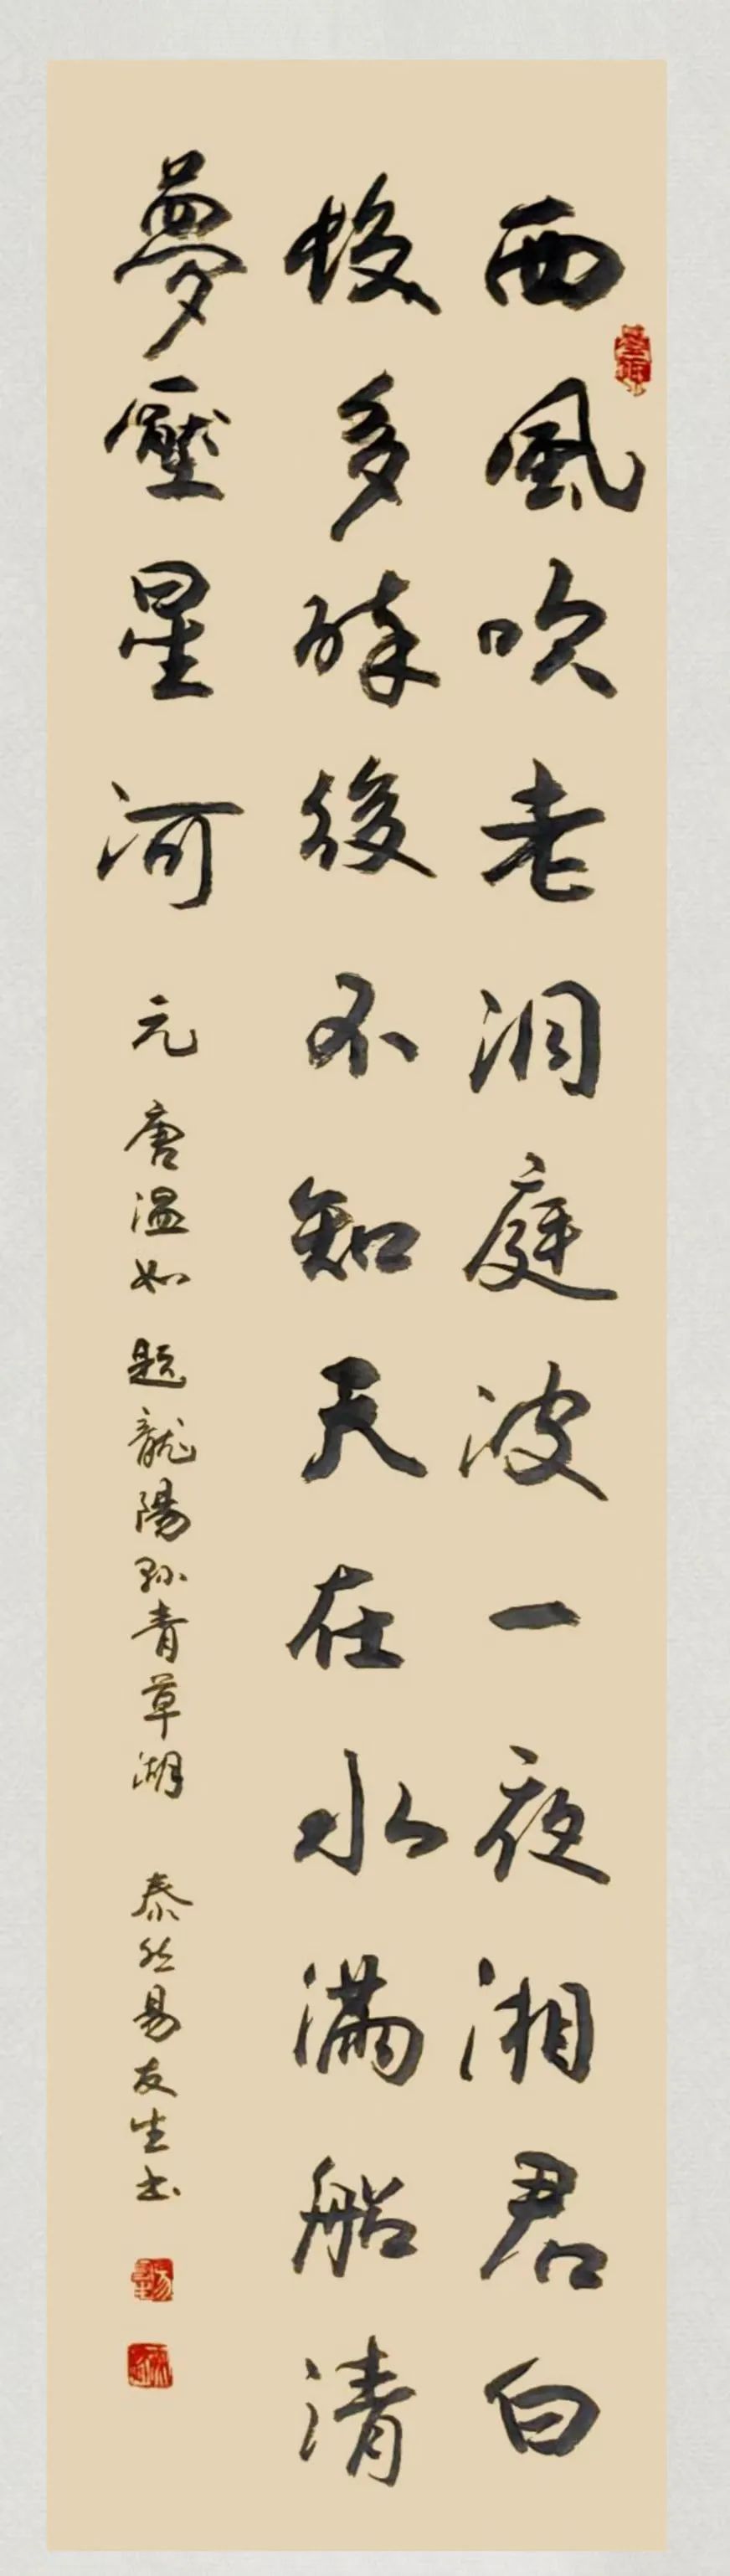 西風吹老洞庭波一夜湘君白
髮多醉後不知天在水滿船清
夢壓星河 元 唐温如 題龍陽縣青草湖 泰然易友生书